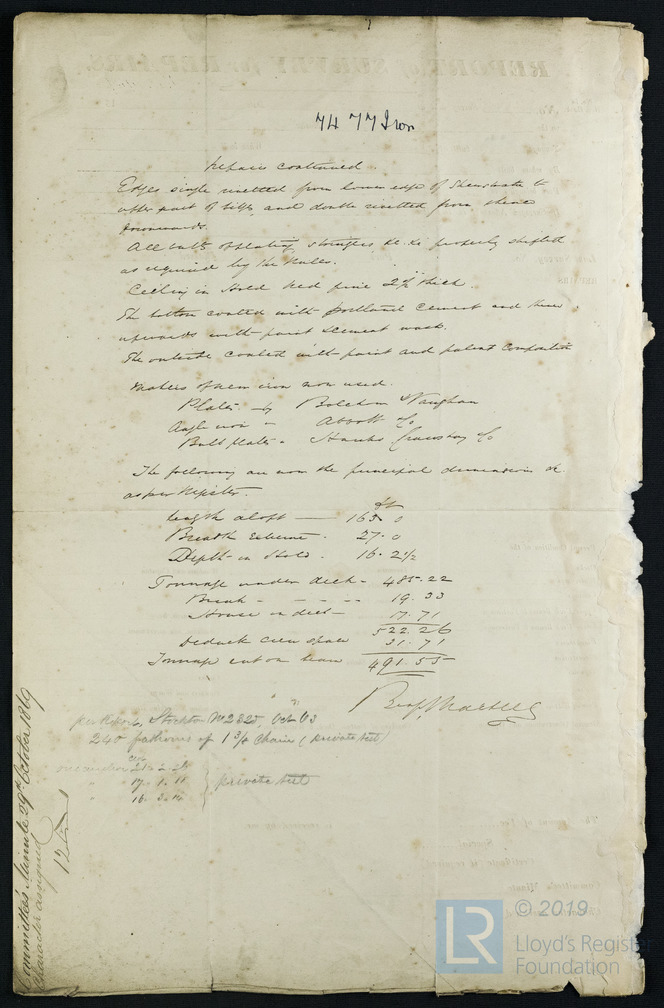 7477 Iron
Repairs continued.
Edges single rivetted from lower edge of Sheerstrake to
upper part of bilge, and double rivetted from thence
downwards.
All butts of plating, stringers &c. &c. properly shifted
as required by the Rules.
Ceiling in Hold Red pine 2½" thick.
The bottom coated with Portland Cement and thence
upwards with paint & cement wash.
The outside coated with paint and patent composition
Makers of new iron now used.
Plates by Bolckow Vaughan
Angle iron " Abbott & Co
Bulb plates " Hawks Crawshay & Co
The following are now the principal dimensions &c
as per Register.
ft
Length aloft — 165. 0
Breadth Extreme. 27. 0
Depth in Hold. 16. 2½
Tonnage under deck - 485.22
Break - - - - 19. 33
House on deck - 17. 71
522. 26
Deduct Crew space 31. 71
Tonnage cut on beam 491. 55
per Report, Stockton No 2325, Oct 63
240 fathoms of 1 3/8 Chain (private test)
17. 1. 11
private test
Committee's Minute 29th October 1869
Character assigned
© 2019
LR
Lloyd's Register
Foundation
REPORT of SURVEY for REPAIRS